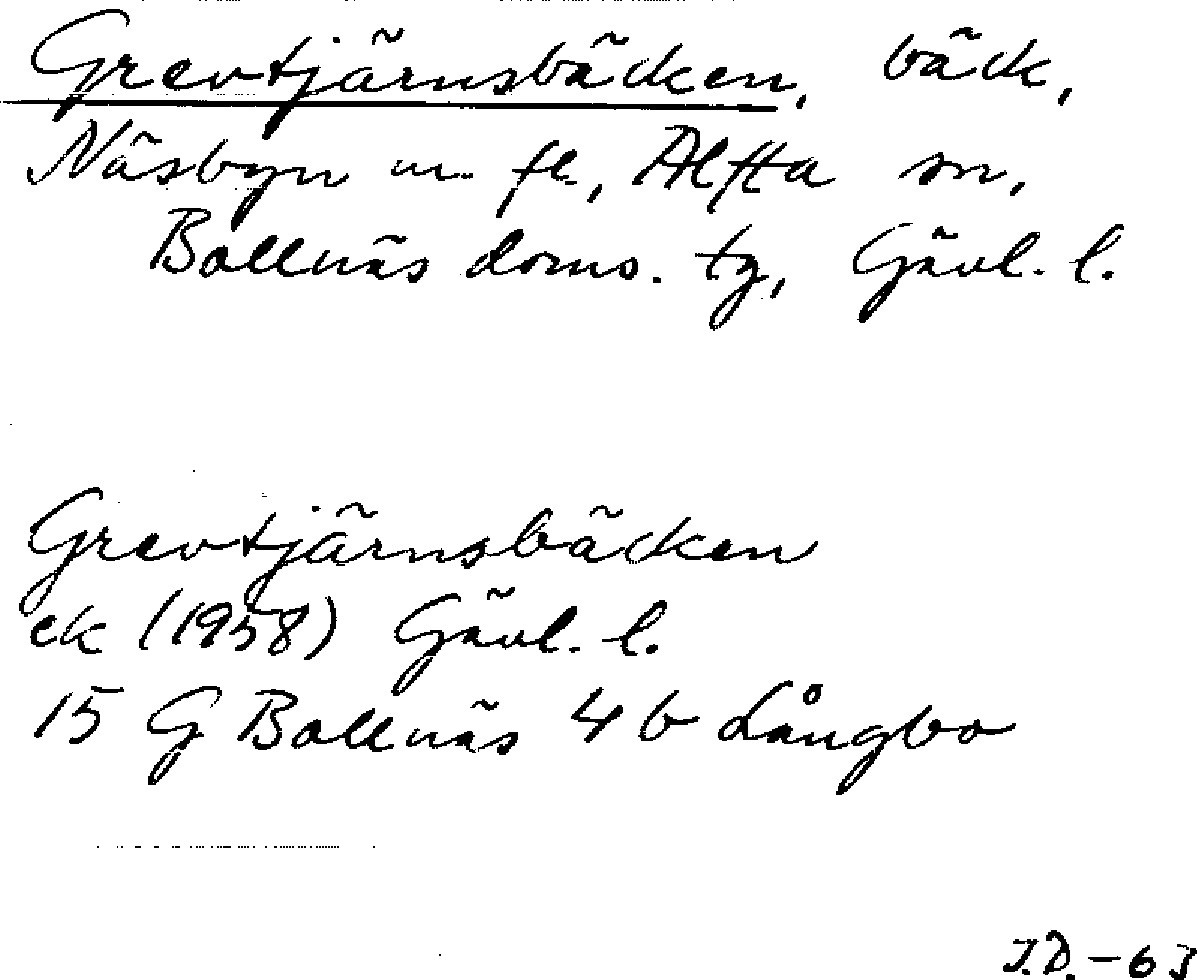 Grevtjärnsbäcken, bäck,
Näsbyn m fl., Alfta sn,
Bollnäs doms. tg, Gävl. l.
Grevtjärnsbäcken
ek (1958) Gävl. l.
15 G Bollnäs 4 b Långbo
I.D. - 63